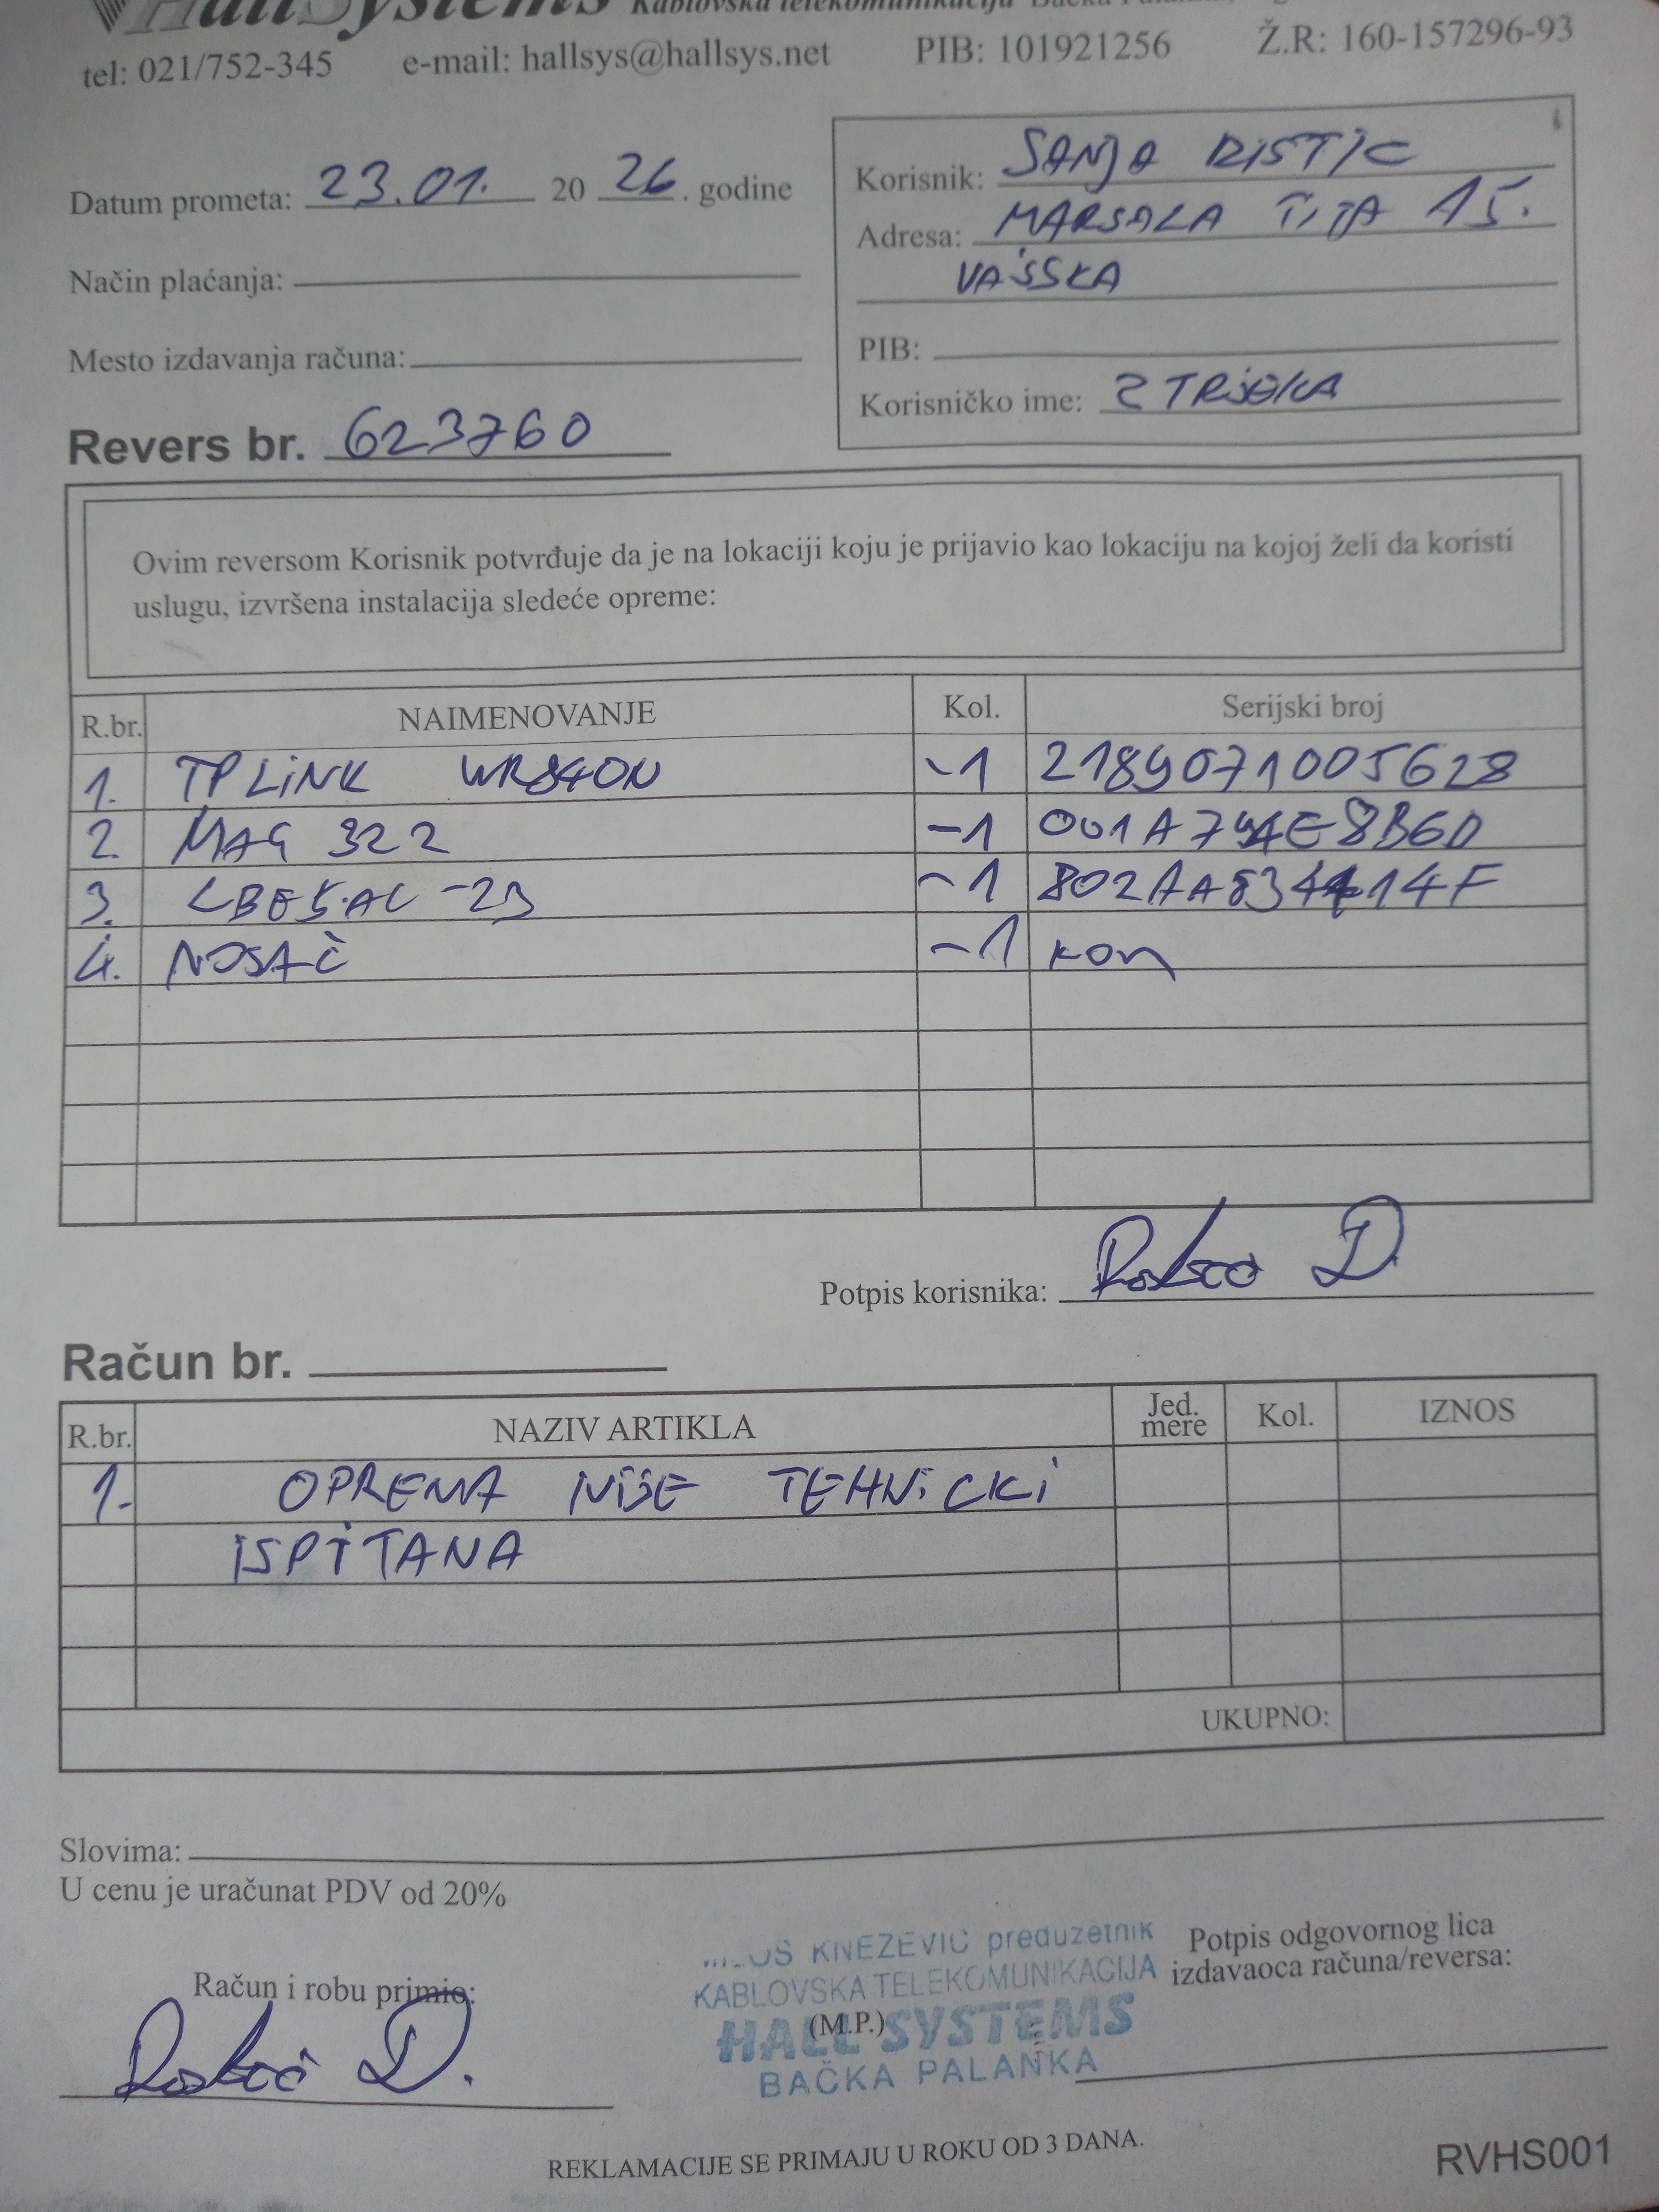 HallSystems Kablovska telekomunikacija Bačka
tel: 021/752-345 e-mail: hallsys@hallsys.net PIB: 101921256 Ž.R: 160-157296-93
Datum prometa: 23.01. 20 26. godine
Način plaćanja:
Mesto izdavanja računa:
Revers br. 623760
Korisnik: SANJA RISTIC
Adresa: MARSALA TITA 15.
VAJSKA
PIB:
Korisničko ime:
Ovim reversom Korisnik potvrđuje da je na lokaciji koju je prijavio kao lokaciju na kojoj želi da koristi
uslugu, izvršena instalacija sledeće opreme:
R.br. NAIMENOVANJE Kol. Serijski broj
1. TP LINK WR840N -1 2189071005628
2. MAG 322 -1 001A794E8B60
3. LBE5.AC-23 -1 802AA834414F
4. NOSAČ -1 kom
Potpis korisnika:
Račun br.
R.br. NAZIV ARTIKLA Jed. mere Kol. IZNOS
1. OPREMA NIJE TEHNICKI
ISPITANA
UKUPNO:
Slovima:
U cenu je uračunat PDV od 20%
Račun i robu primio:
KNEŽEVIĆ preduzetnik
KABLOVSKA TELEKOMUNIKACIJA
(M.P.)
HALL SYSTEMS
BAČKA PALANKA
Potpis odgovornog lica
izdavaoca računa/reversa:
REKLAMACIJE SE PRIMAJU U ROKU OD 3 DANA.
RVHS001